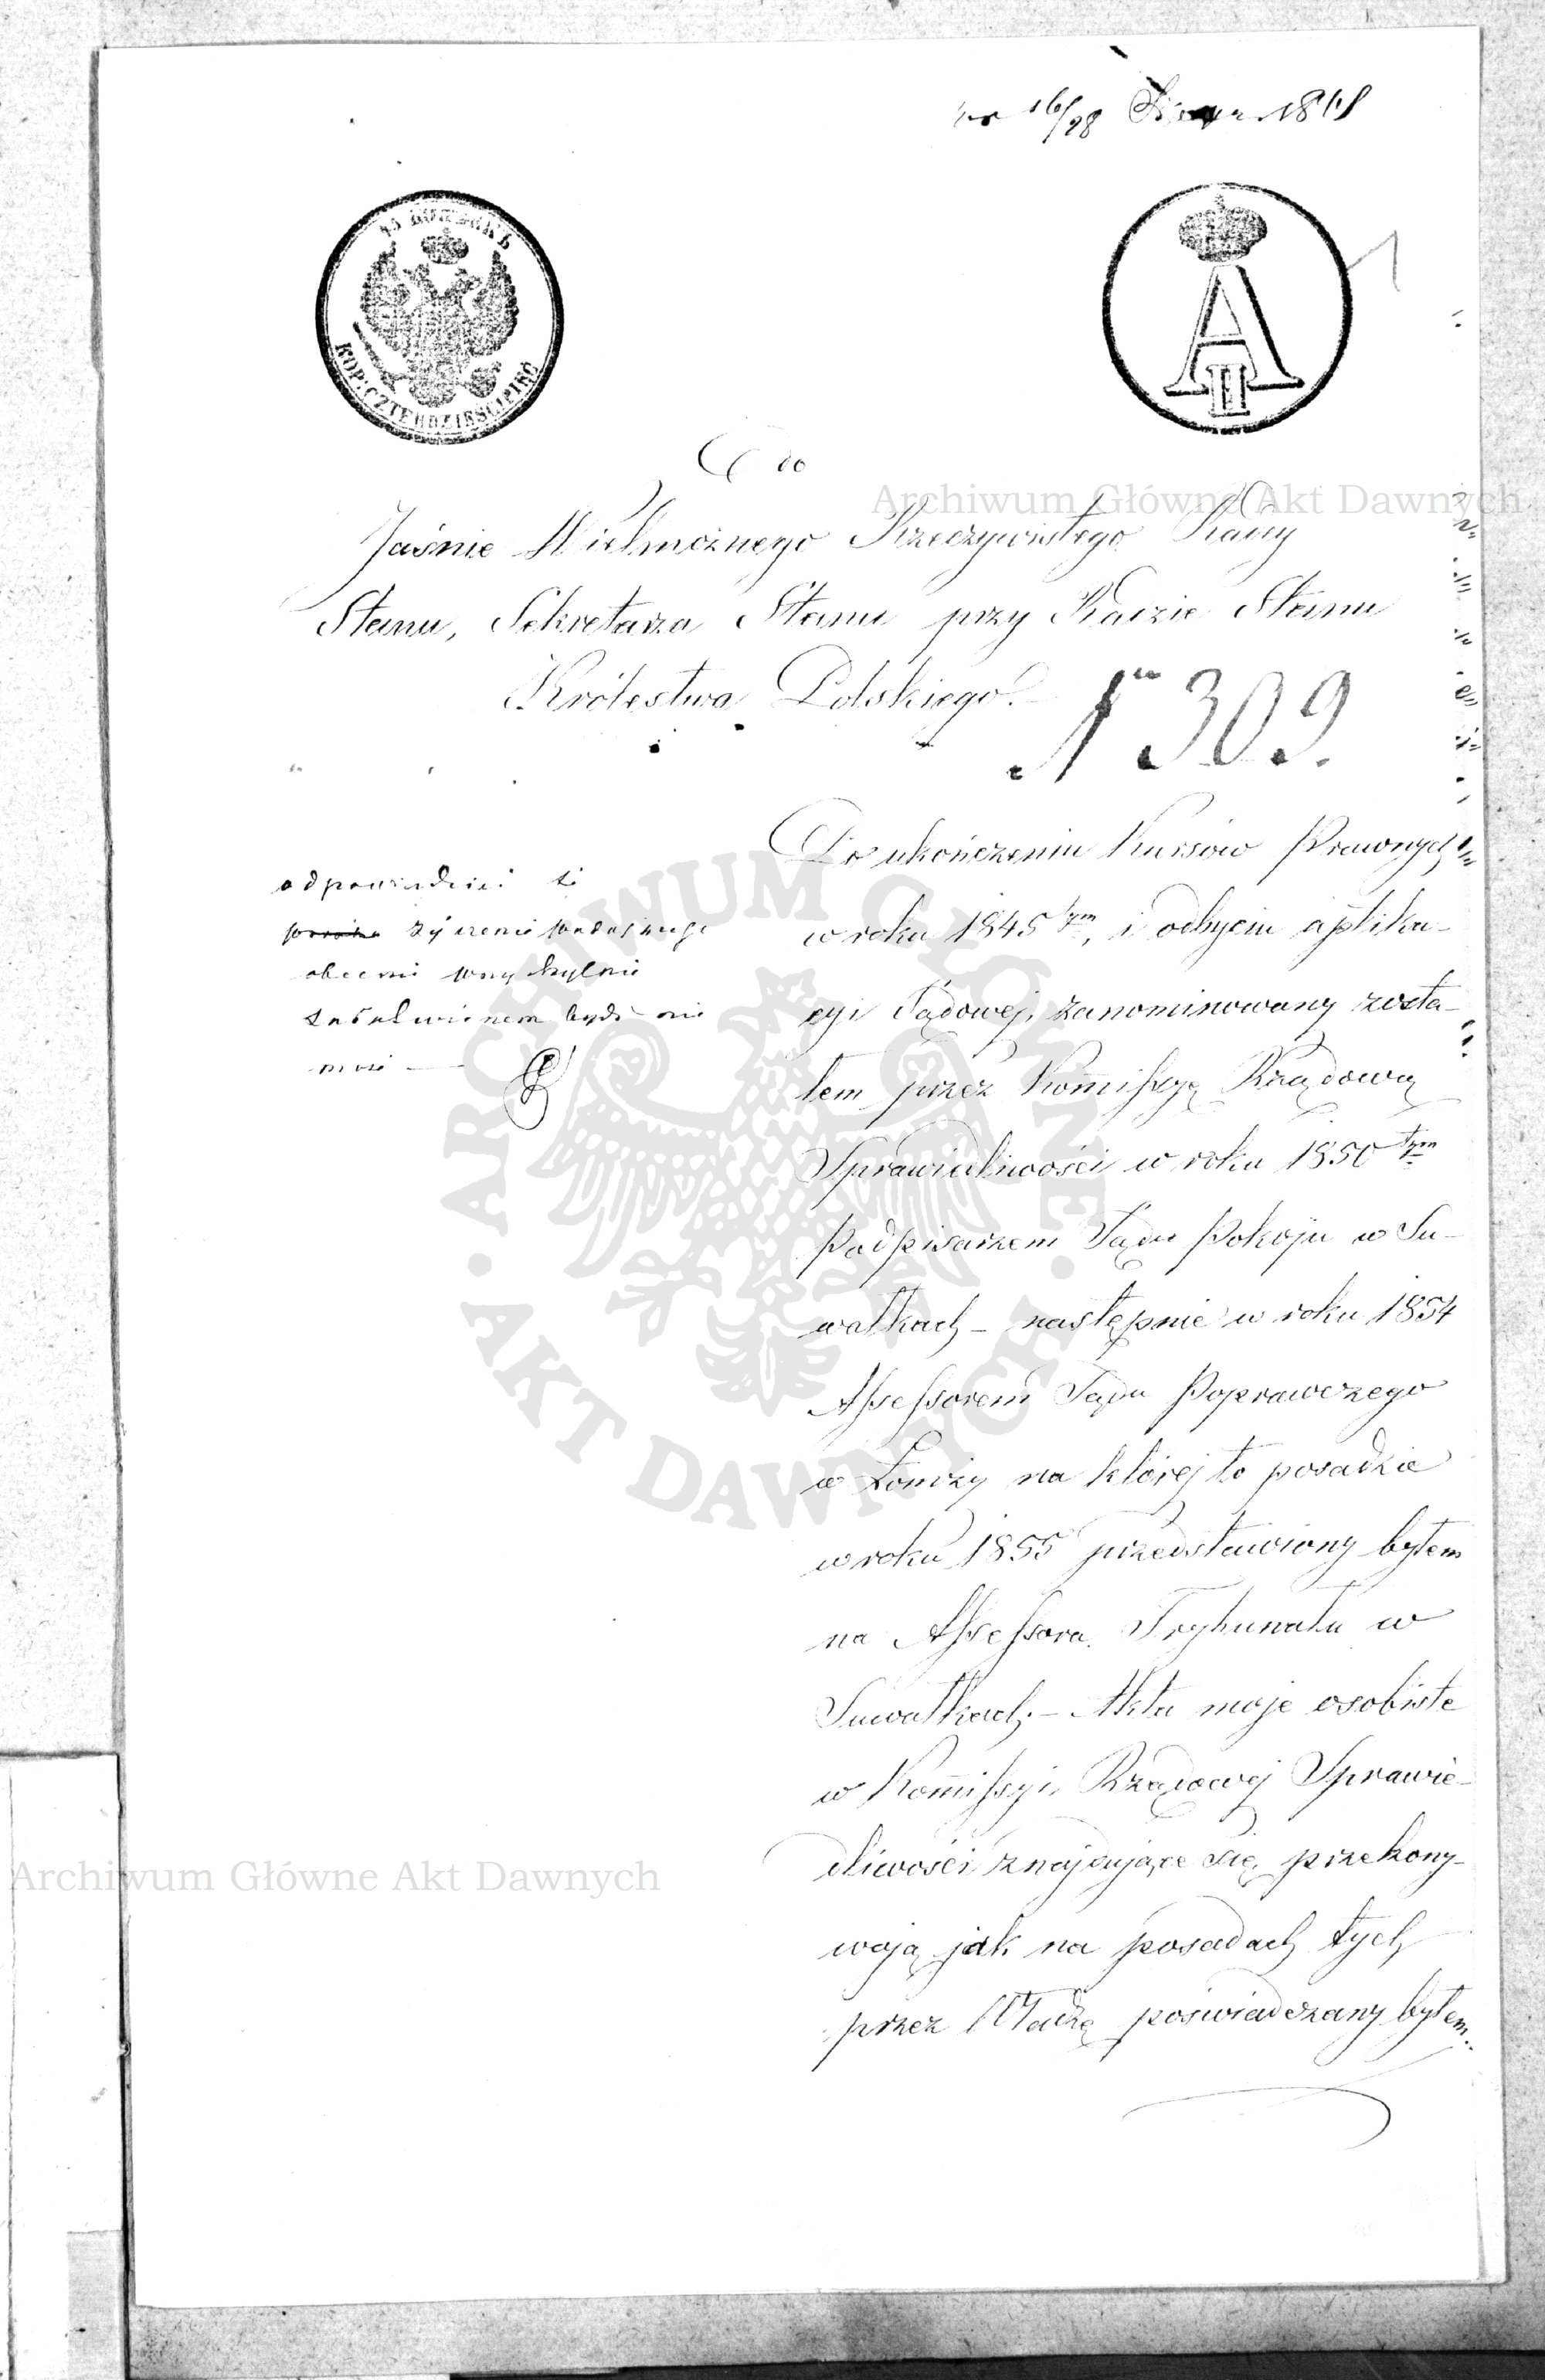 16/28
45 КОПѢЕКЪ
KOP: CZTERDZIEŚCI PIĘĆ
A II
1
Do
Jaśnie Wielmożnego Rzeczywistego Radcy
Stanu, Sekretarza Stanu przy Radzie Stanu
Królestwa Polskiego.
N 309.
odpowiedzieć że
życzenie
obecnie
być nie
może
Po ukończeniu Kursów Prawnych
w roku 1845 tym, i odbyciu aplika-
cyi Sądowej, zanominowany zosta-
łem przez Kommissyę Rządową
Sprawiedliwości w roku 1850 tym
Podpisarzem Sądu Pokoju w Su-
wałkach – następnie w roku 1854
Assessorem Sądu Poprawczego
w Łomży na której to posadzie
w roku 1855 przedstawiony byłem
na Assessora Trybunału w
Suwałkach; – Akta moje osobiste
w Kommissyi Rządowej Sprawie-
dliwości znajdujące się, przekony-
wają jak na posadach tych
przez Władzę poświadczany byłem.
Archiwum Główne Akt Dawnych
ARCHIWUM GŁÓWNE
AKT DAWNYCH
Archiwum Główne Akt Dawnych